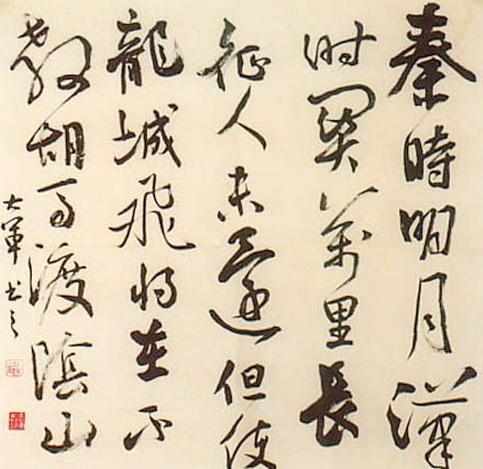 秦時明月漢
时関萬里長
征人未還但使
龍城飛将在不
教胡马渡陰山
大軍书之